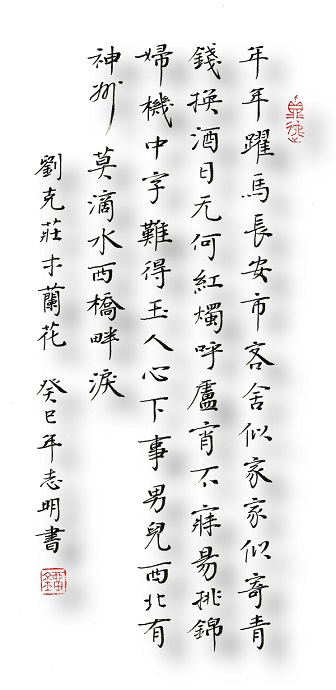 年年躍馬長安市客舍似家家似寄青
錢換酒日无何紅燭呼盧宵不寐易挑錦
婦機中字難得玉人心下事男兒西北有
神州 莫滴水西橋畔淚
劉克莊木蘭花 癸巳年志明書